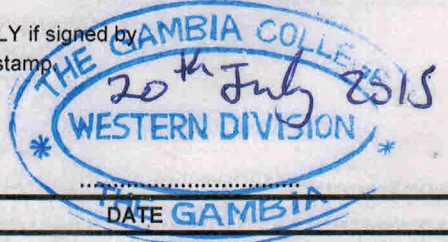 LY if signed by
stamp.
THE GAMBIA COLLEGE
20th July 2015
WESTERN DIVISION
* *
DATE
THE GAMBIA